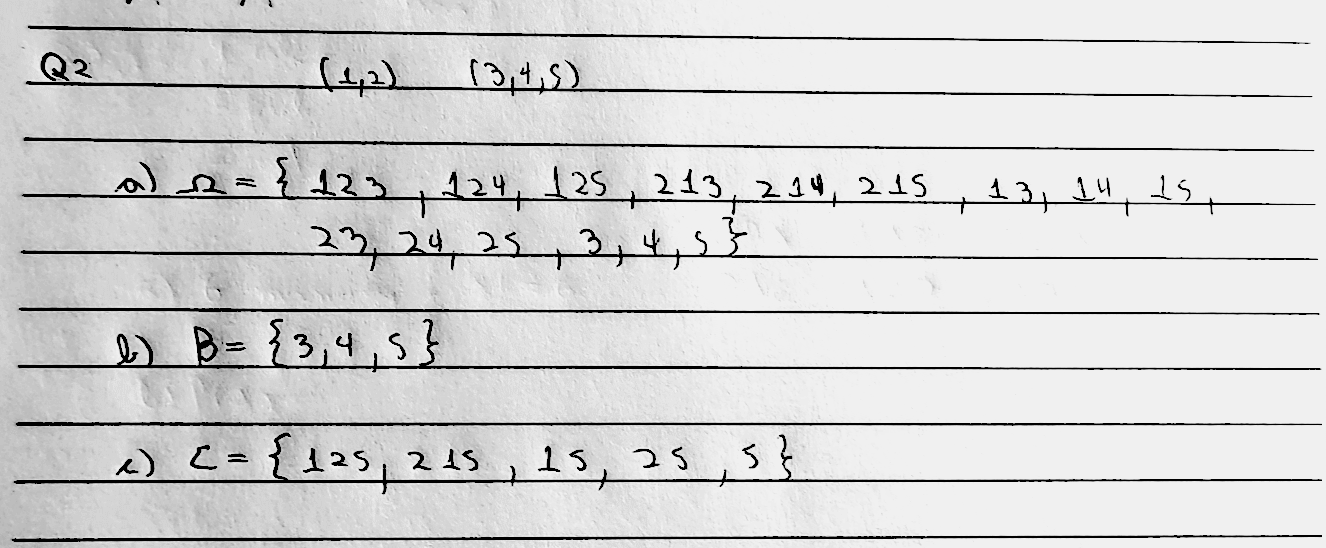 Q2 (1,2) (3,4,5)
a) Ω = { 123 , 124, 125 , 213, 214, 215 , 13, 14, 15,
23, 24, 25 , 3, 4, 5}
b) B = {3,4,5}
c) C = {125, 215 , 15, 25 , 5}